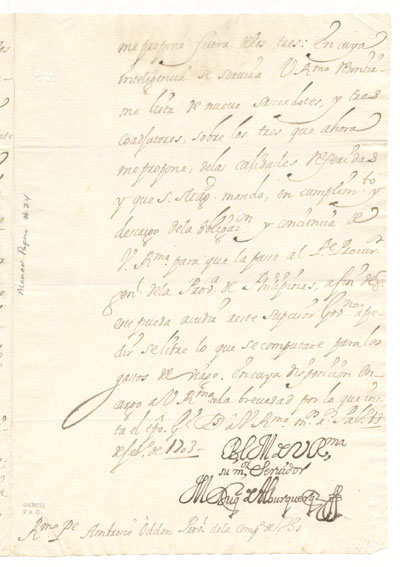 me propone fuera delos tres: En cuya
inteligencia se servirá V Rma remitir
me lista de nueve sacerdotes, y tres
coadjutores, sobre los tres que ahora
me propone, delas calidades referidas
y que S. Magd. manda, en cumplimto
y descargo dela obligacon y conciencia de
V. Rma para que la passe al Pe Procur
genl. dela Prova. de Philipinas, a fin de q
este pueda acudir ante Superior Govno a pe
dir se libre lo que se computare para los
gastos de viage. En cuya disposicion en
cargo a V Rma la brevedad por lo que ins
ta el tpo. Gde Ds a V. Rma ms as
de febo. de 1703
BLM de V Rma
su mr. Servidor
Alburquerque
Rmo Pe Antonio Oddon Provl. dela Compa de Jhs
Alaman Papers #24
GARCIA